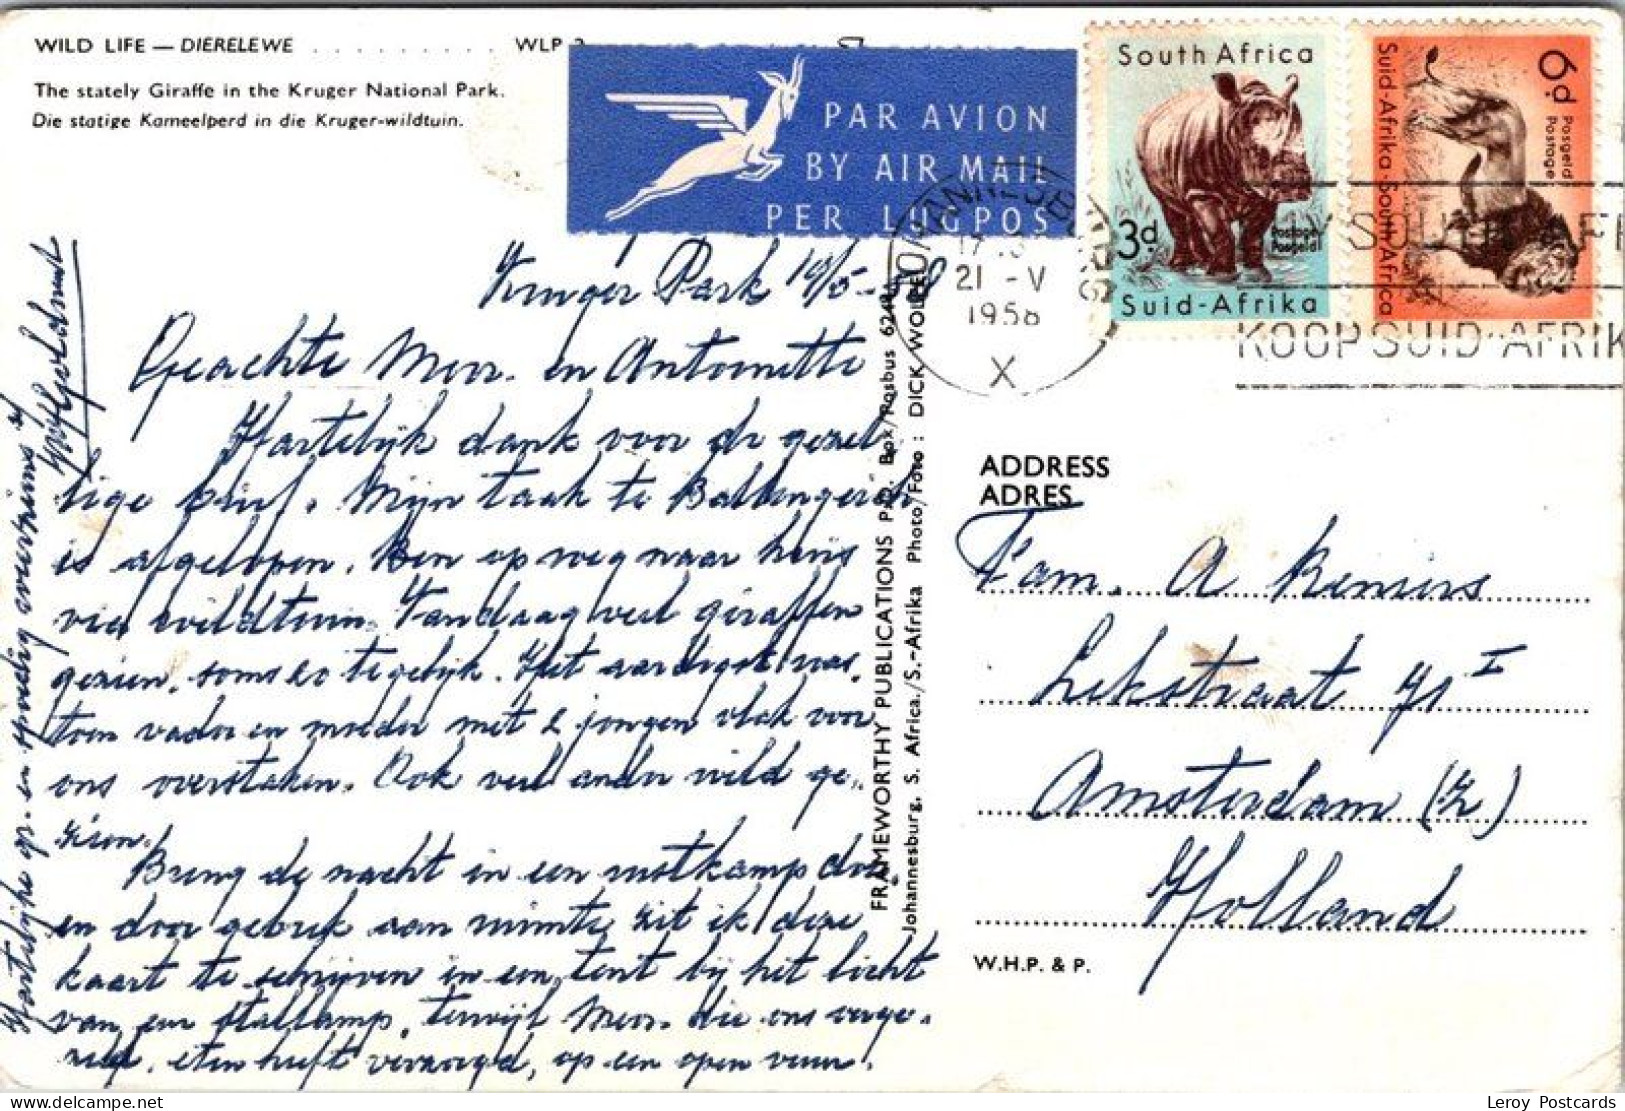 WILD LIFE — DIERELEWE . . . . . . . . . . WLP
The stately Giraffe in the Kruger National Park.
Die statige Kameelperd in die Kruger-wildtuin.
PAR AVION
BY AIR MAIL
PER LUGPOS
South Africa
3d.
Postage
Posgeld
Suid-Afrika
6d
Posgeld
Postage
Suid-Afrika · South Africa
JOHANNESBURG
21 - V
1958
X
KOOP SUID-AFRIK
Kruger Park 19/5-58
Geachte Mevr. en Antoinette
Hartelijk dank voor de gezel-
lige brief. Mijn taak te
is afgelopen. Ben op weg naar huis
via wildtuin. Vandaag veel giraffen
gezien, soms 20 tegelijk. Het aardigst was,
toen vader en moeder met 2 jongen vlak voor
ons overstaken. Ook veel ander wild ge-
zien.
Breng de nacht in een rustkamp door
en door gebrek aan ruimte zit ik deze
kaart te schrijven in een tent bij het licht
van een stallamp, terwijl Mevr. die ons verge-
zelt, eten heeft verzorgd, op een open vuur.
Hartelijke gr. en spoedig weerziens
FRAMEWORTHY PUBLICATIONS P.O. Box/Posbus 624
Johannesburg. S. Africa./S.-Afrika Photo/Foto : DICK WOLFE
ADDRESS
ADRES
Fam. A
Lekstraat I
Amsterdam (Z)
Holland
W.H.P. & P.
Leroy Postcards